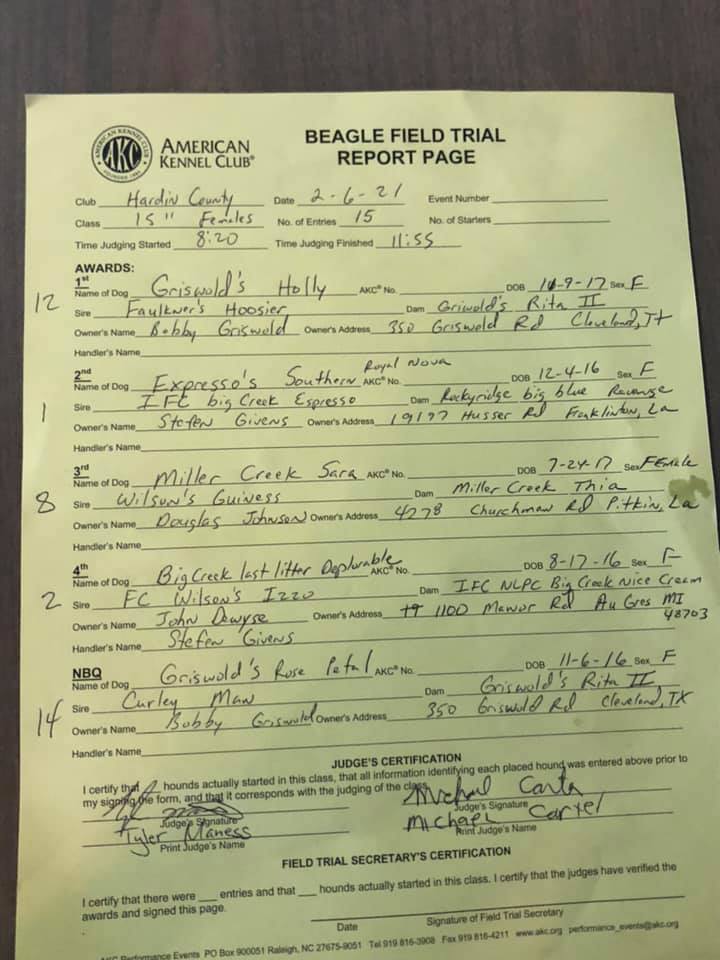 AMERICAN KENNEL CLUB
FOUNDED 1884
AKC
AMERICAN
KENNEL CLUB®
BEAGLE FIELD TRIAL
REPORT PAGE
Club Hardin County Date 2-6-21 Event Number
Class 15" Females No. of Entries 15 No. of Starters
Time Judging Started 8:20 Time Judging Finished 11:55
AWARDS:
1st
12 Name of Dog Griswold's Holly AKC® No. DOB 10-9-17 Sex F
Sire Faulkner's Hoosier Dam Griwold's Rita II
Owner's Name Bobby Griswold Owner's Address 350 Griswold Rd Cleveland, TX
Handler's Name
2nd Royal Nova
Name of Dog Expresso's Southern AKC® No. DOB 12-4-16 Sex F
1 Sire IFC big Creek Espresso Dam Rockyridge big blue Revenge
Owner's Name Stefen Givens Owner's Address 19197 Husser Rd Franklinton, La
Handler's Name
3rd
Name of Dog Miller Creek Sara AKC® No. DOB 7-24-17 Sex FEmale
8 Sire Wilson's Guiness Dam Miller Creek Thia
Owner's Name Douglas Johnson Owner's Address 4278 Churchman Rd Pitkin, La
Handler's Name
4th
Name of Dog Big Creek last litter Deplorable AKC® No. DOB 8-17-16 Sex F
2 Sire FC Wilson's Izzo Dam IFC NLPC Big Creek Nice Cream
Owner's Name John Dewyse Owner's Address 1100 Manor Rd Au Gres MI
48703
Handler's Name Stefen Givens
NBQ
Name of Dog Griswold's Rose Petal AKC® No. DOB 11-6-16 Sex F
14 Sire Curley Man Dam Griswold's Rita II
Owner's Name Bobby Griswold Owner's Address 350 Griswold Rd Cleveland, TX
Handler's Name
JUDGE'S CERTIFICATION
I certify that hounds actually started in this class, that all information identifying each placed hound was entered above prior to
my signing the form, and that it corresponds with the judging of the class.
Michael
Judge's Signature Judge's Signature
Tyler Maness Michael Cartel
Print Judge's Name Print Judge's Name
FIELD TRIAL SECRETARY'S CERTIFICATION
I certify that there were ___ entries and that ___ hounds actually started in this class. I certify that the judges have verified the
awards and signed this page.
Date Signature of Field Trial Secretary
AKC Performance Events PO Box 900051 Raleigh, NC 27675-9051 Tel 919 816-3908 Fax 919 816-4211 www.akc.org performance_events@akc.org